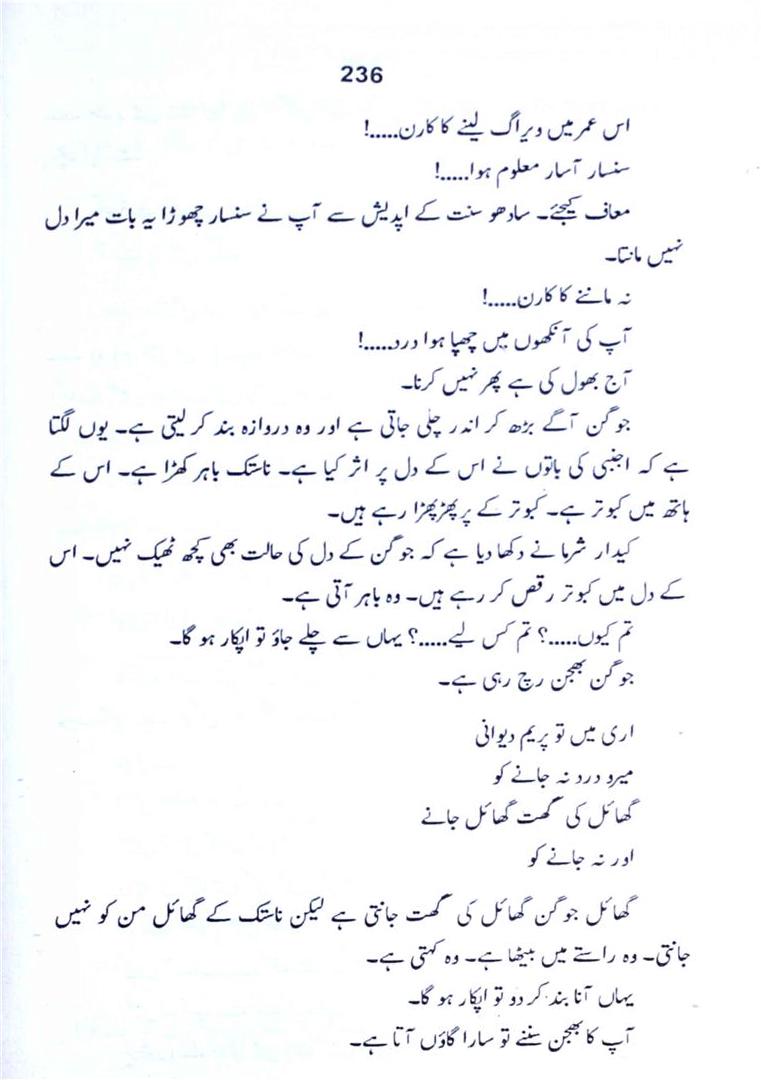 236
اس عمر میں ویراگ لینے کا کارن.....!
سنسار آسار معلوم ہوا.....!
معاف کیجئے۔ سادھو سنت کے اپدیش سے آپ نے سنسار چھوڑا یہ بات میرا دل
نہیں مانتا۔
نہ ماننے کا کارن.....!
آپ کی آنکھوں میں چھپا ہوا درد.....!
آج بھول کی ہے پھر نہیں کرنا۔
جوگن آگے بڑھ کر اندر چلی جاتی ہے اور وہ دروازہ بند کر لیتی ہے۔ یوں لگتا
ہے کہ اجنبی کی باتوں نے اس کے دل پر اثر کیا ہے۔ ناستک باہر کھڑا ہے۔ اس کے
ہاتھ میں کبوتر ہے۔ کبوتر کے پر پھڑپھڑا رہے ہیں۔
کیدار شرما نے دکھا دیا ہے کہ جوگن کے دل کی حالت بھی کچھ ٹھیک نہیں۔ اس
کے دل میں کبوتر رقص کر رہے ہیں۔ وہ باہر آتی ہے۔
تم کیوں.....؟ تم کس لیے.....؟ یہاں سے چلے جاؤ تو اپکار ہو گا۔
جوگن بھجن رچ رہی ہے۔
اری میں تو پریم دیوانی
میرو درد نہ جانے کو
گھائل کی گھت گھائل جانے
اور نہ جانے کو
گھائل جوگن گھائل کی گھت جانتی ہے لیکن ناستک کے گھائل من کو نہیں
جانتی۔ وہ راستے میں بیٹھا ہے۔ وہ کہتی ہے۔
یہاں آنا بند کر دو تو اپکار ہو گا۔
آپ کا بھجن سننے تو سارا گاؤں آتا ہے۔